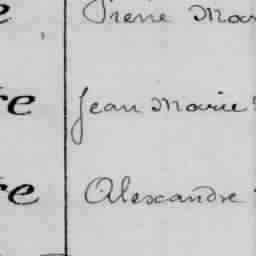 e Pierre Mar
re Jean Marie
re Alexandre